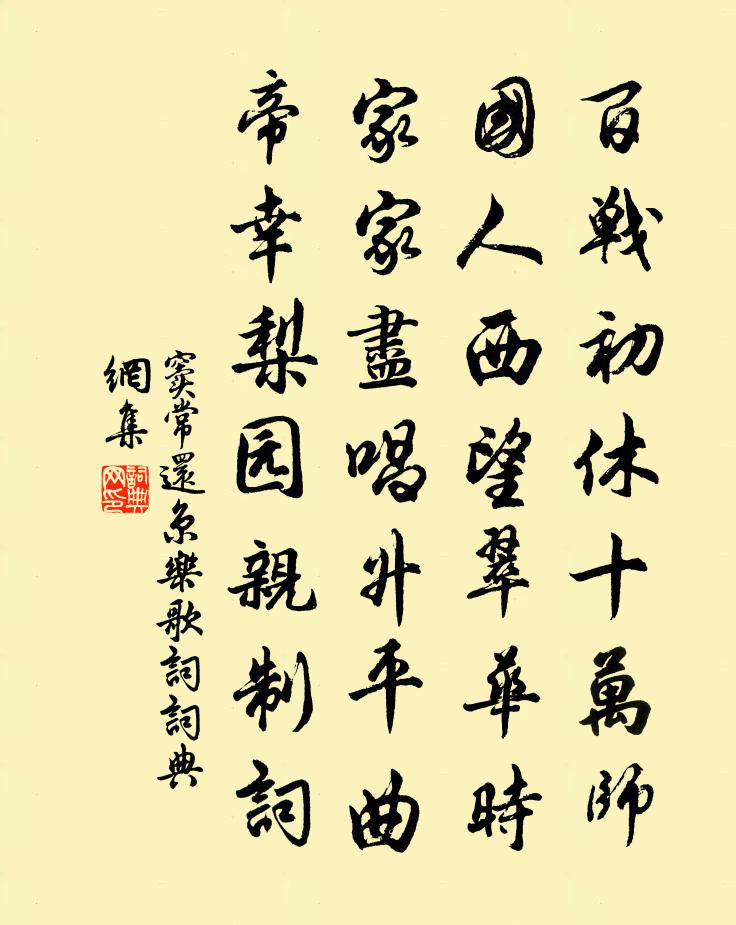 百戰初休十萬師
國人西望翠華時
家家盡唱升平曲
帝幸梨园親制詞
窦常還京樂歌詞詞典
網集
詞典網印